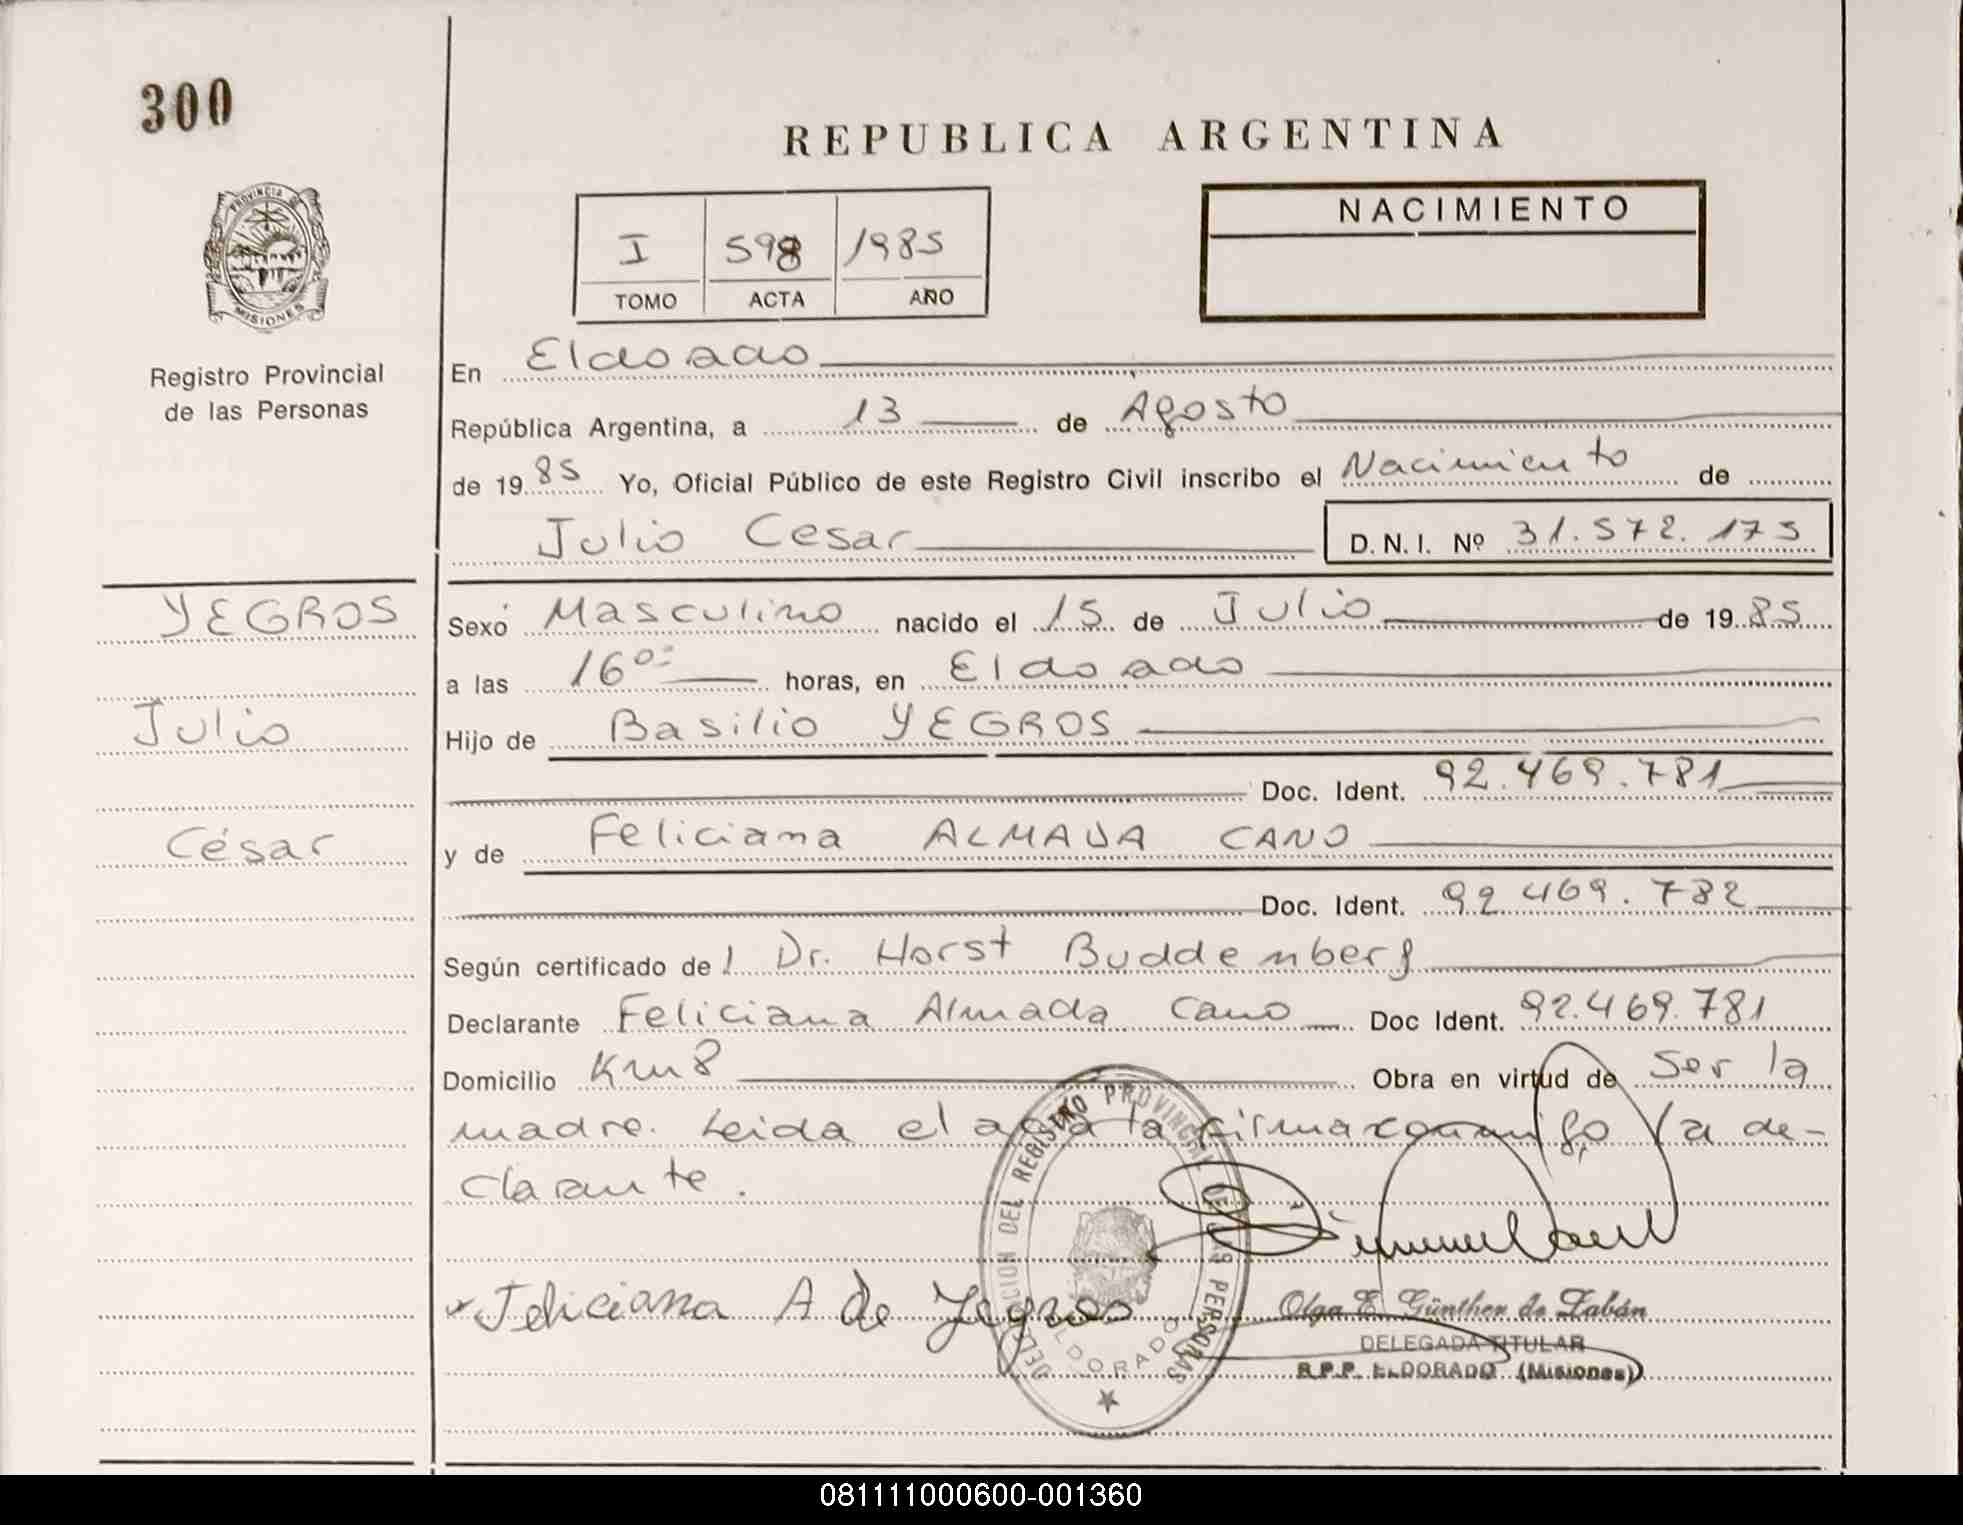 300
REPUBLICA ARGENTINA
PROVINCIA DE MISIONES
I 598 1985
TOMO ACTA AÑO
NACIMIENTO
Registro Provincial
de las Personas
En Eldorado
República Argentina, a 13 de Agosto
de 1985 Yo, Oficial Público de este Registro Civil inscribo el Nacimiento de
Julio Cesar D.N.I. Nº 31.572.175
YEGROS
Julio
César
Sexo Masculino nacido el 15 de Julio de 1985
a las 16 horas, en Eldorado
Hijo de Basilio YEGROS
Doc. Ident. 92.469.781
y de Feliciana ALMADA CANO
Doc. Ident. 92.469.782
Según certificado de l Dr. Horst Buddemberg
Declarante Feliciana Almada Cano Doc Ident. 92.469.781
Domicilio Km 8 Obra en virtud de ser la
madre. Leida el acta la firma conmigo la de-
clarante.
Feliciana A de Yegros
DELEGACION DEL REGISTRO PROVINCIAL DE LAS PERSONAS
ELDORADO
Olga E. Günther de Zabán
DELEGADA TITULAR
R.P.P. ELDORADO (Misiones)
081111000600-001360